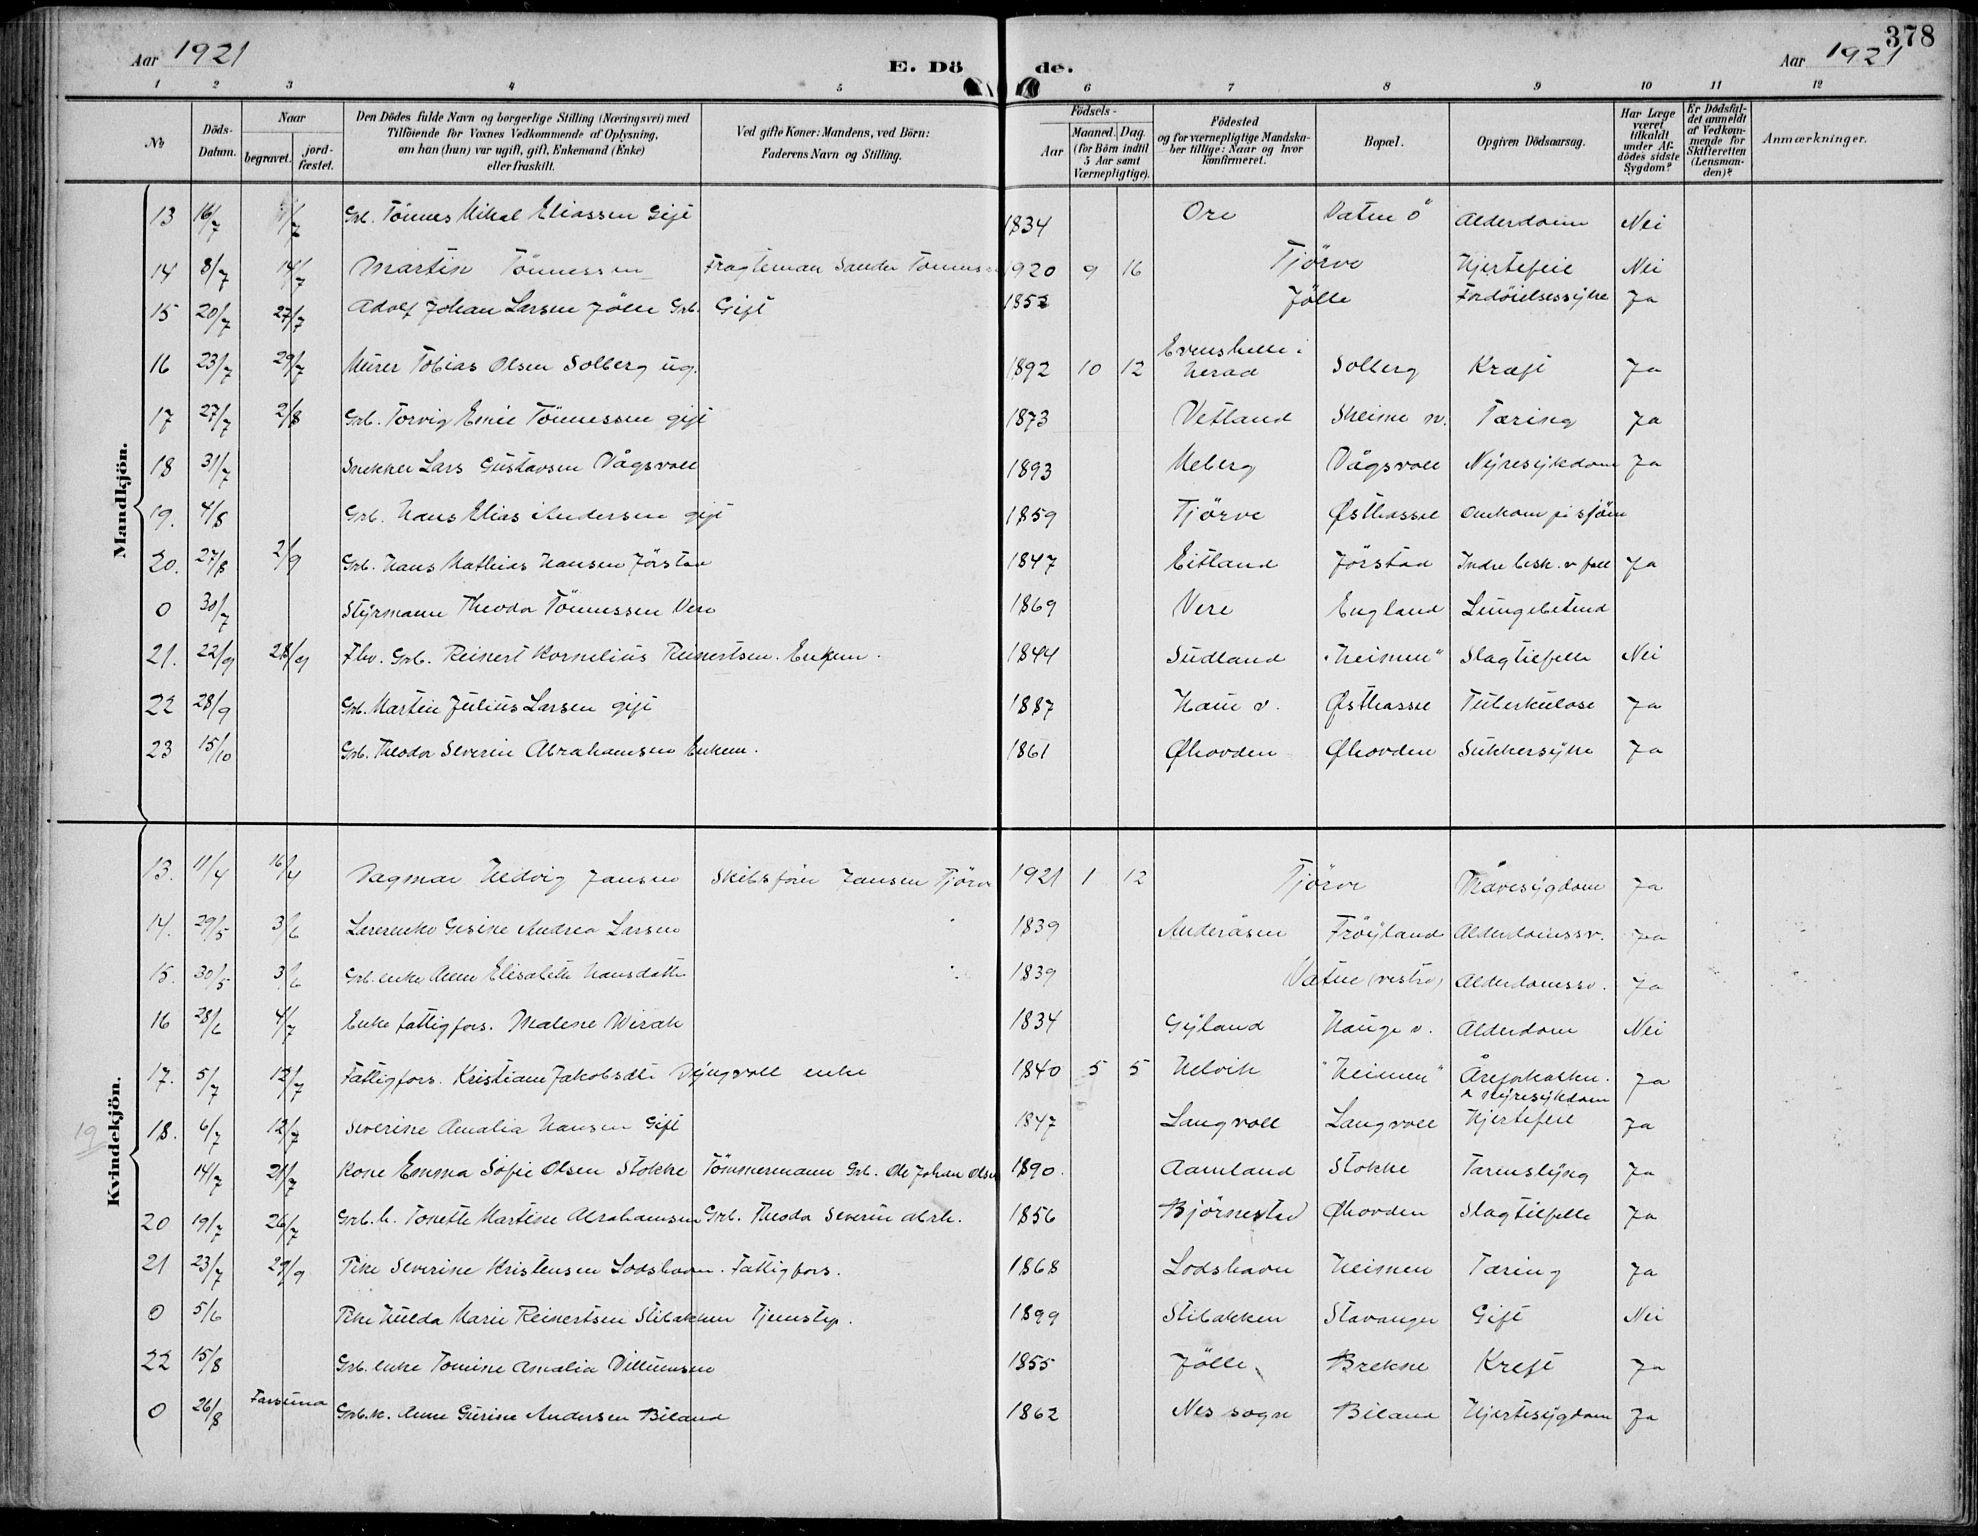 378
Aar 1921 E. Dö de. Aar 1921
1 2 3 4 5 6 7 8 9 10 11 12
No Döds-Datum. Naar begravet. jord-fæstet. Den Dödes fulde Navn og borgerlige Stilling (Næringsvei) med Tilföiende for Voxnes Vedkommende af Oplysning, om han (hun) var ugift, gift, Enkemand (Enke) eller fraskilt. Ved gifte Koner: Mandens, ved Börn: Faderens Navn og Stilling. Födsels- Aar Maaned. Dag. (for Börn indtil 5 Aar samt Værnepligtige). Födested og for værnepligtige Mandska-ber tillige: Naar og hvor konfirmeret. Bopæl. Opgiven Dödsaarsag. Har Læge været tilkaldt under Af-dödes sidste Sygdom? Er Dödsfal-det anmeldt af Vedkom-mende for Skifteretten (Lensman-den)? Anmærkninger.
Mandkjön.
13 16/7 Grb. Tönnes Mikal Eliassen Gift 1834 Ore Vatne ö Alderdom Nei
14 8/7 14/7 Martin Tönnessen Fragteman Sander Tönness 1920 9 16 Tjörve Hjertefeil Nei
15 20/7 27/7 Adolf Johan Larsen Jölle Grb. Gift 1852 Jölle Fordöielsessyke Ja
16 23/7 29/7 Murer Tobias Olsen Solberg ug. 1892 10 12 Evenshelle i Herad Solberg Kræft Ja
17 27/7 2/8 Grb. Torvig Emil Tönnessen gift 1873 Vetland Skeime n. Tæring Ja
18 31/7 Snekker Lars Gustavsen Vågsvoll 1893 Meberg Vågsvoll Nyresykdom Ja
19. 4/8 Grb. Hans Elias Andersen gift 1859 Tjörve Østhassel Omkom på sjöen
20. 27/8 2/9 Grb. Hans Mathias Hansen Jörstad 1847 Eitland Jörstad Indre besk. v fall Ja
0 30/7 Styrmann Theodor Tönnessen Vere 1869 Vere England Lungebetend
21. 22/9 28/9 Fhv. Grb. Reinert Kornelius Reinertsen. Enkem. 1844 Sudland "Heimen" Slagtilfelle Nei
22 28/9 Grb. Martin Julius Larsen gift 1887 Haui v. Østhassel Tuberkulose Ja
23 15/10 Grb. Theodor Severin Abrahamsen Enkem. 1861 Øhovden Øhovden Sukkersyke Ja
Kvindekjön.
13. 11/4 16/4 Dagmar Hedvig Jansen Skibsförer Jansen Tjörve 1921 1 12 Tjörve Mavesygdom Ja
14. 29/5 3/6 Lærerenke Gesine Andrea Larsen 1839 Anderåsen Fröyland Alderdomssv. Ja
15. 30/5 3/6 Grb. enke Anne Elisabeth Hansdatte 1839 Vatne (vestre) Alderdomssv. Ja
16 28/6 4/7 Enke fattigfors. Malene Wirak 1834 Gyland Hauge v. Alderdom Nei
17. 5/7 12/7 Fattigfors. Kristiane Jakobsdt. Dyngvoll enke 1840 5 5 Helvik "Heimen" Åreforkalkn. & Nyresykdom Ja
19 18. 6/7 12/7 Severine Amalia Hansen Gift 1847 Langvoll Langvoll Hjertefeil Ja
14/7 21/7 Kone Emma Sofie Olsen Stokke Tömmermann Grb. Ole Johan Olsen 1890. Aamland Stokke Tarmslyng Ja
20 19/7 26/7 Grb. k. Tonette Martine Abrahamsen Grb. Theodor Severin Abrh. 1856 Björnestad Øhovden Slagtilfelle Ja
21 23/7 29/9 Pike Severine Kristensen Lodshavn. Fattigfors. 1868 Lodshavn Heimen Tæring Ja
0 5/6 Pike Hulda Marie Reinertsen Stibakken Tjenstep. 1899 Stibakken Stavanger Gift Nei
22 15/8 Grb. enke Tomine Amalia Villumsen 1855 Jölle Brekne Kreft Ja
0 26/8 Farsund Grb. k. Anne Gurine Andersen Biland 1862 Nes sogn Biland Hjertesygdom Ja